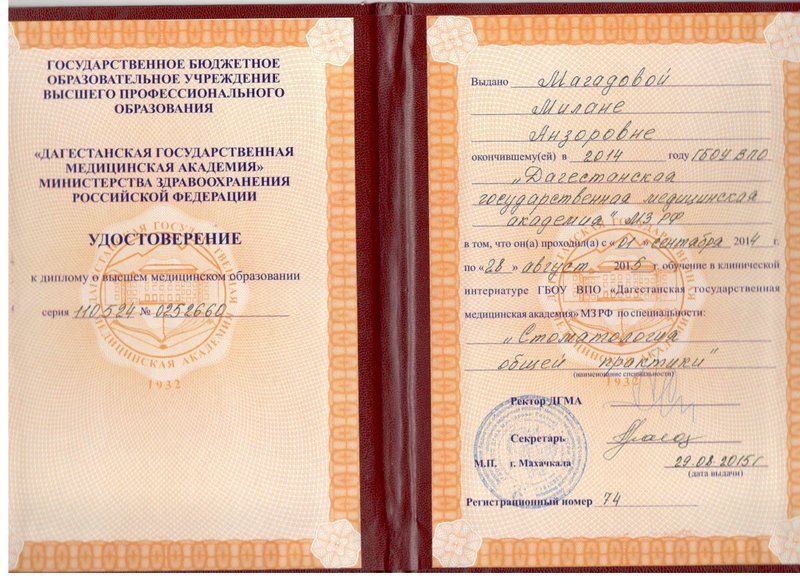 ГОСУДАРСТВЕННОЕ БЮДЖЕТНОЕ
ОБРАЗОВАТЕЛЬНОЕ УЧРЕЖДЕНИЕ
ВЫСШЕГО ПРОФЕССИОНАЛЬНОГО
ОБРАЗОВАНИЯ
«ДАГЕСТАНСКАЯ ГОСУДАРСТВЕННАЯ
МЕДИЦИНСКАЯ АКАДЕМИЯ»
МИНИСТЕРСТВА ЗДРАВООХРАНЕНИЯ
РОССИЙСКОЙ ФЕДЕРАЦИИ
УДОСТОВЕРЕНИЕ
к диплому о высшем медицинском образовании
серия 110524 № 0252660
ДАГЕСТАНСКАЯ ГОСУДАРСТВЕННАЯ
МЕДИЦИНСКАЯ АКАДЕМИЯ
1932
Выдано Магадовой
Милане
Анзоровне
окончившему(ей) в 2014 году ГБОУ ВПО
„Дагестанская
государственная медицинская
академия" МЗ РФ
в том, что он(а) проходил(а) с «01» сентября 2014 г.
по «28» август 2015 г. обучение в клинической
интернатуре ГБОУ ВПО «Дагестанская государственная
медицинская академия» МЗ РФ по специальности:
„Стоматология
общей практики"
(наименование специальности)
1932
Ректор ДГМА
Секретарь
М.П. г. Махачкала 29.08.2015г
(дата выдачи)
Регистрационный номер 74